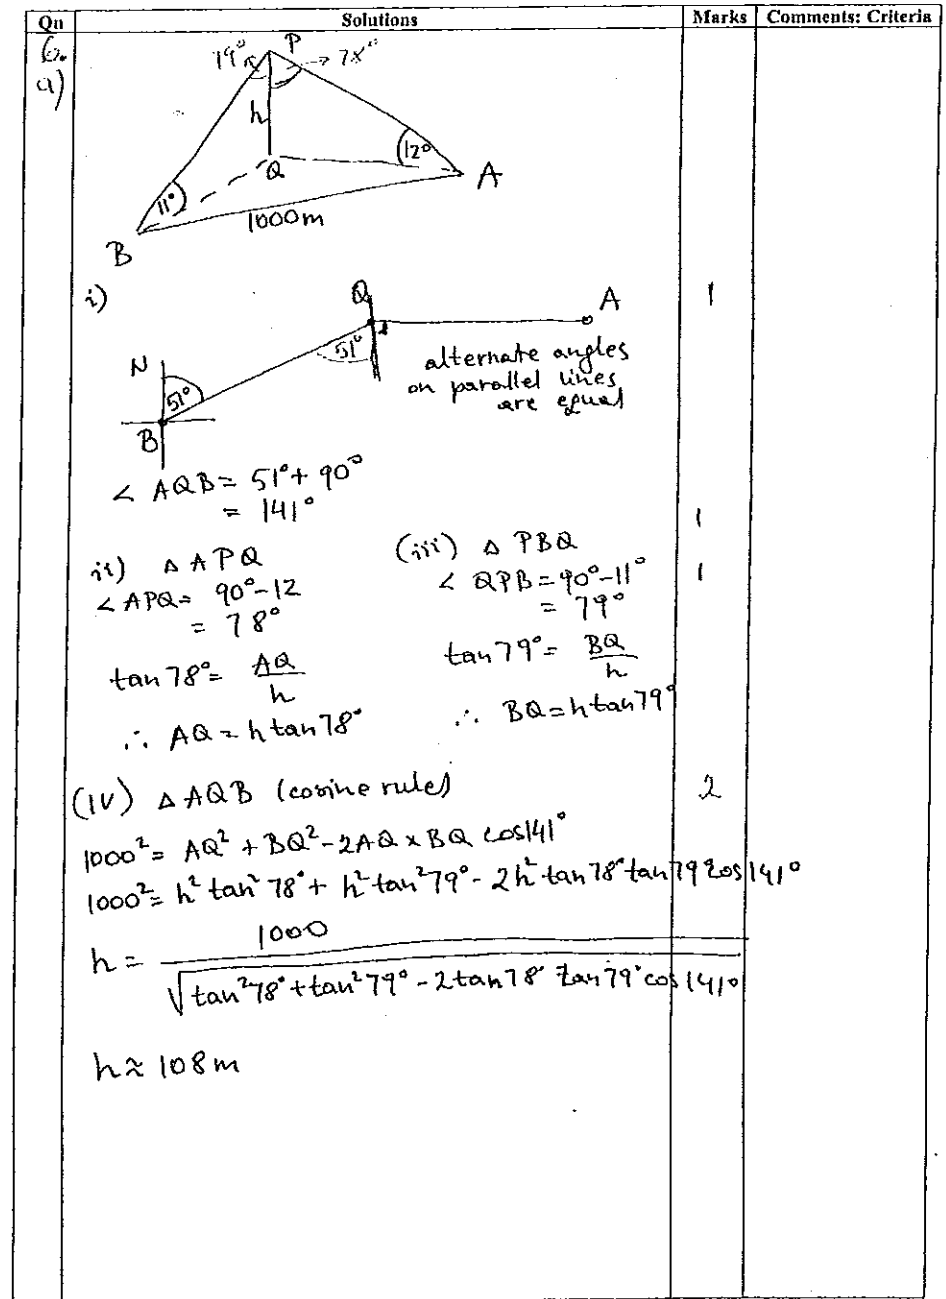 Qn Solutions Marks Comments: Criteria
6.
a)
P
79° 78°
h
12°
Q
A
11°
1000m
B
i) Q A 1
N 51° alternate angles
51° on parallel lines
are equal
B
< AQB = 51° + 90°
= 141°
1
ii) △ APQ
<APQ = 90° - 12
= 78°
tan 78° = AQ/h
∴ AQ = h tan 78°
(iii) △ PBQ 1
< QPB = 90° - 11°
= 79°
tan 79° = BQ/h
∴ BQ = h tan 79°
(IV) △ AQB (cosine rule) 2
1000² = AQ² + BQ² - 2AQ × BQ cos141°
1000² = h² tan² 78° + h² tan² 79° - 2h² tan 78° tan 79 cos 141°
h = 1000/√tan²78° + tan²79° - 2tan78° tan79° cos 141°
h ≈ 108m